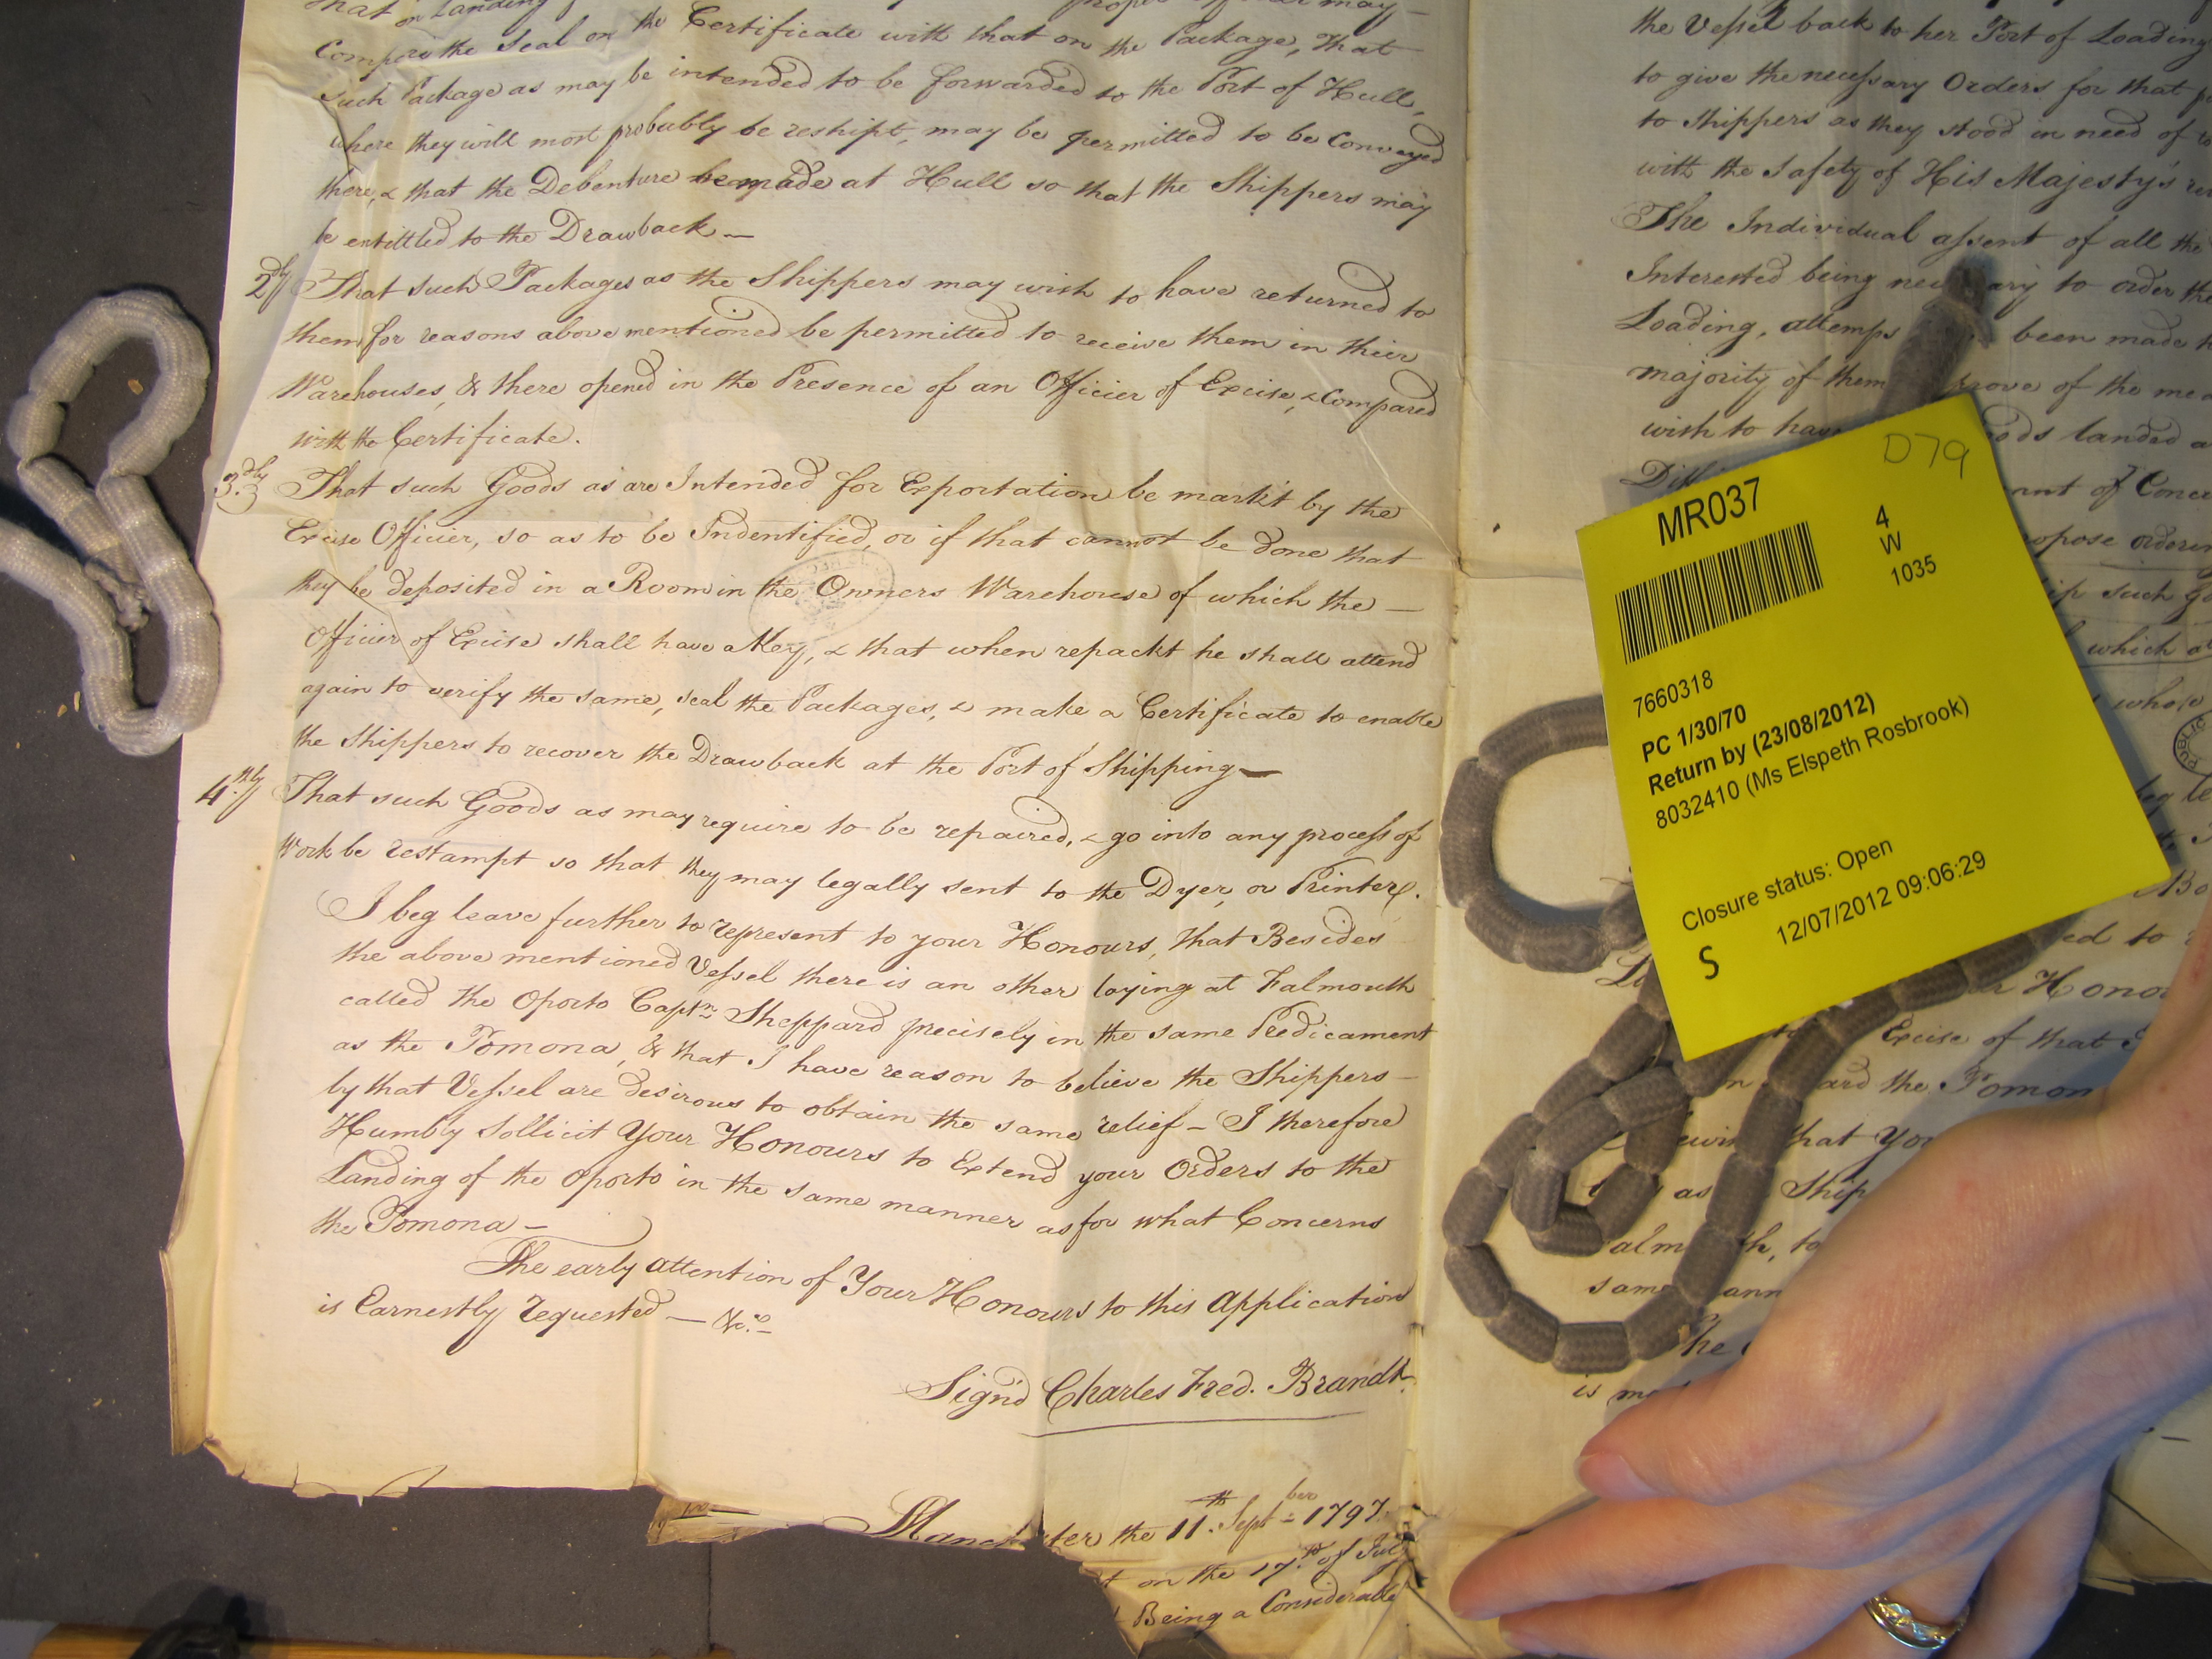 that on Landing proper may
Compare the Seal on the Certificate with that on the Package, That
such Package as may be intended to be forwarded to the Port of Hull,
where they will most probably be reshipt, may be permitted to be Conveyed
there, & that the Debenture be made at Hull so that the Shippers may
be entittled to the Drawback —
2dly That such Packages as the Shippers may wish to have returned to
them for reasons above mentioned be permitted to receive them in thier
Warehouses, & there opened in the Presence of an Officier of Excise, & Compared
with the Certificate.
3.dly That such Goods as are Intended for Exportation be markt by the
Excise Officier, so as to be Indentified, or if that cannot be done that
they be deposited in a Room in the Owners Warehouse of which the —
Officier of Excise shall have a Key, & that when repackt he shall attend
again to verify the same, seal the Packages, & make a Certificate to enable
the Shippers to recover the Drawback at the Port of Shipping —
4.thly That such Goods as may require to be repaired, & go into any process of
Work be restampt so that they may legally sent to the Dyer, or Printer.
I beg leave further to represent to your Honours, that Besides
the above mentioned Vessel there is an other laying at Falmouth
called the Oporto Captn Sheppard precisely in the same Predicament
as the Pomona, & that I have reason to believe the Shippers —
by that Vessel are desirous to obtain the same relief — I therefore
Humbly Sollicit Your Honours to Extend your Orders to the
Landing of the Oporto in the same manner as for what Concerns
the Pomona —
The early attention of Your Honours to this Application
is Earnestly requested — &c.
Sign'd Charles Fred. Brandt.
the 11th Septber 1797.
on the 17th of
Being a Considerable
the Vessel back to her Port of Loading
to give the necessary Orders for that
to Shippers as they stood in need of
with the Safety of His Majesty's
The Individual assent of all the
Interested being to order the
Loading, attemps been made
majority of them of the
wish to have landed
of
ordering
such
which
whose
to
Excise of that
the Pomon
that You
as Ship
to
same
The
is
D79
MR037
4
W
1035
7660318
PC 1/30/70
Return by (23/08/2012)
8032410 (Ms Elspeth Rosbrook)
Closure status: Open
S 12/07/2012 09:06:29
PUBLIC